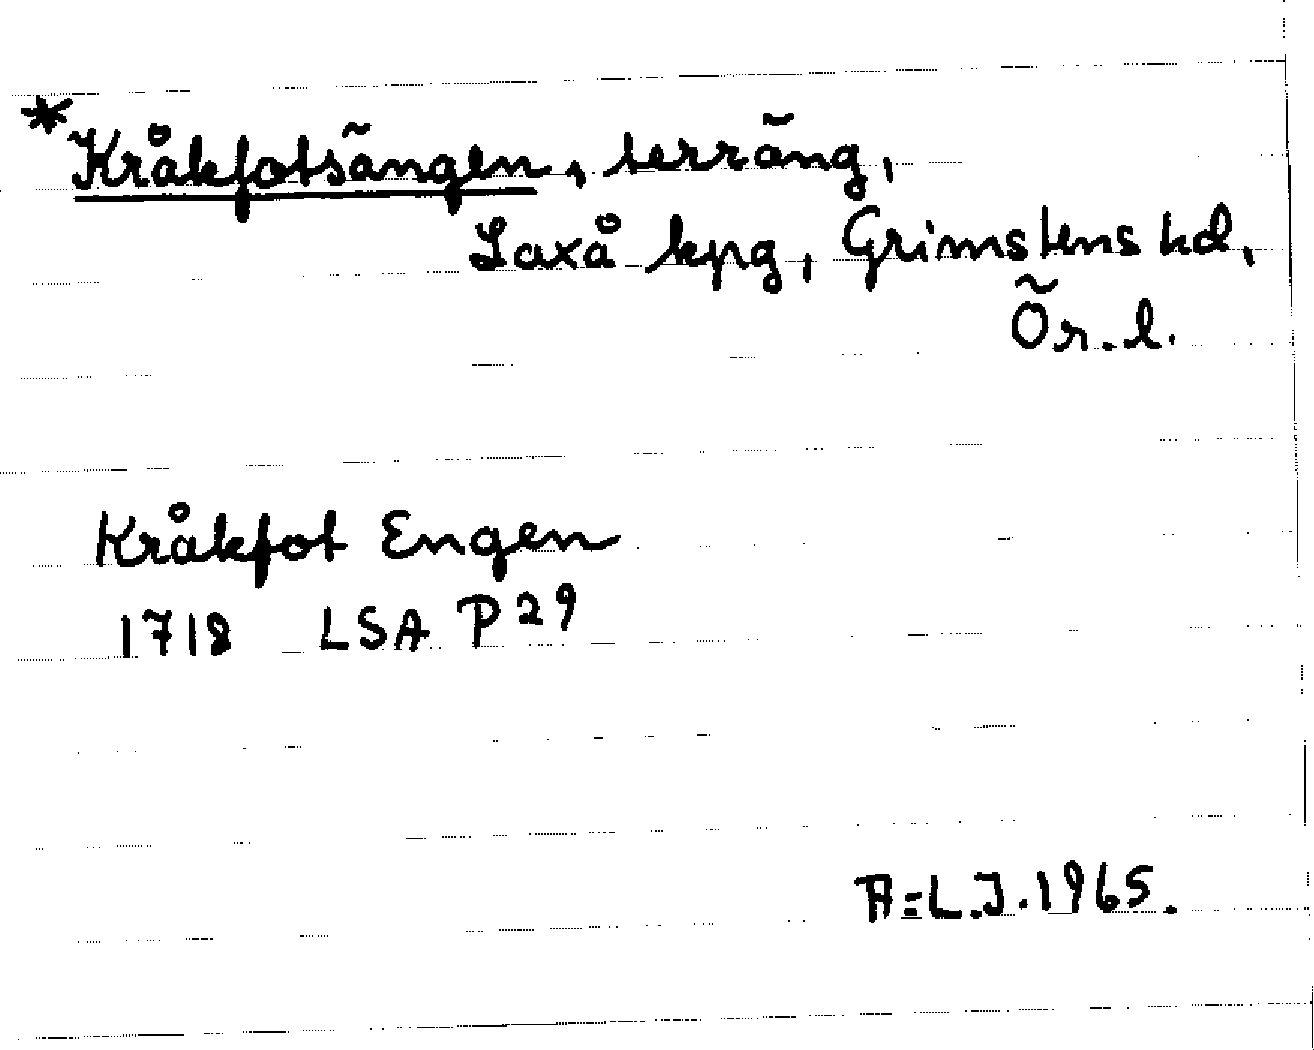 *Kråkfotsängen, terräng,
Laxå kpg, Grimstens hd,
Ör. l.
Kråkfot Engen
1718 LSA P 29
A=L.J. 1965.